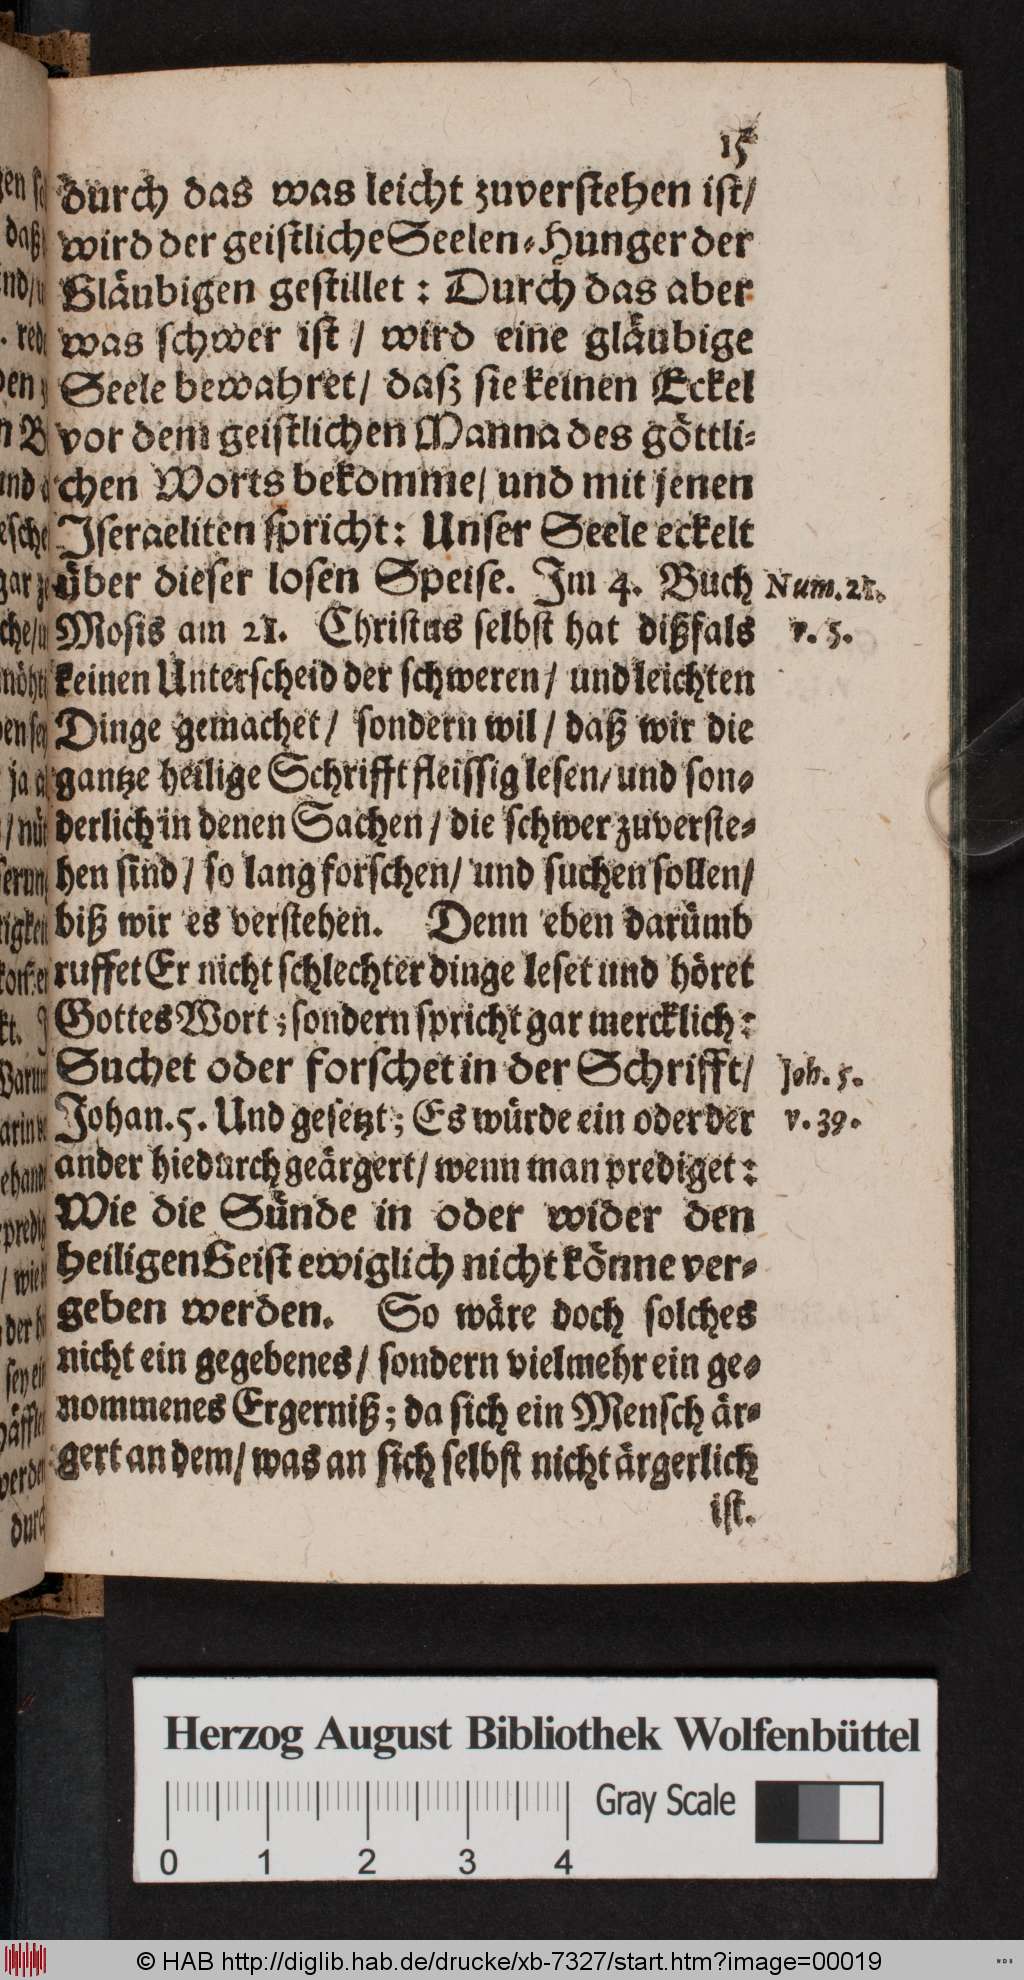 15
durch das was leicht zuverstehen ist/
wird der geistliche Seelen-Hunger der
Gläubigen gestillet: Durch das aber
was schwer ist / wird eine gläubige
Seele bewahret/ daß sie keinen Eckel
vor dem geistlichen Manna des göttli-
chen Worts bekomme/ und mit jenen
Iseraeliten spricht: Unser Seele eckelt
über dieser losen Speise. Im 4. Buch
Num. 21.
Mosis am 21. Christus selbst hat dißfals
v. 5.
keinen Unterscheid der schweren / und leichten
Dinge gemachet / sondern wil / daß wir die
gantze heilige Schrifft fleissig lesen/ und son-
derlich in denen Sachen / die schwer zuverste-
hen sind / so lang forschen/ und suchen sollen/
biß wir es verstehen. Denn eben darümb
ruffet Er nicht schlechter dinge leset und höret
Gottes Wort; sondern spricht gar mercklich:
Suchet oder forschet in der Schrifft/
Joh. 5.
Johan. 5. Und gesetzt; Es würde ein oder der
v. 39.
ander hiedurch geärgert/ wenn man prediget:
Wie die Sünde in oder wider den
heiligen Geist ewiglich nicht könne ver-
geben werden. So wäre doch solches
nicht ein gegebenes / sondern vielmehr ein ge-
nommenes Ergerniß; da sich ein Mensch är-
gert an dem/ was an sich selbst nicht ärgerlich
ist.
Herzog August Bibliothek Wolfenbüttel
Gray Scale
0 1 2 3 4
© HAB http://diglib.hab.de/drucke/xb-7327/start.htm?image=00019